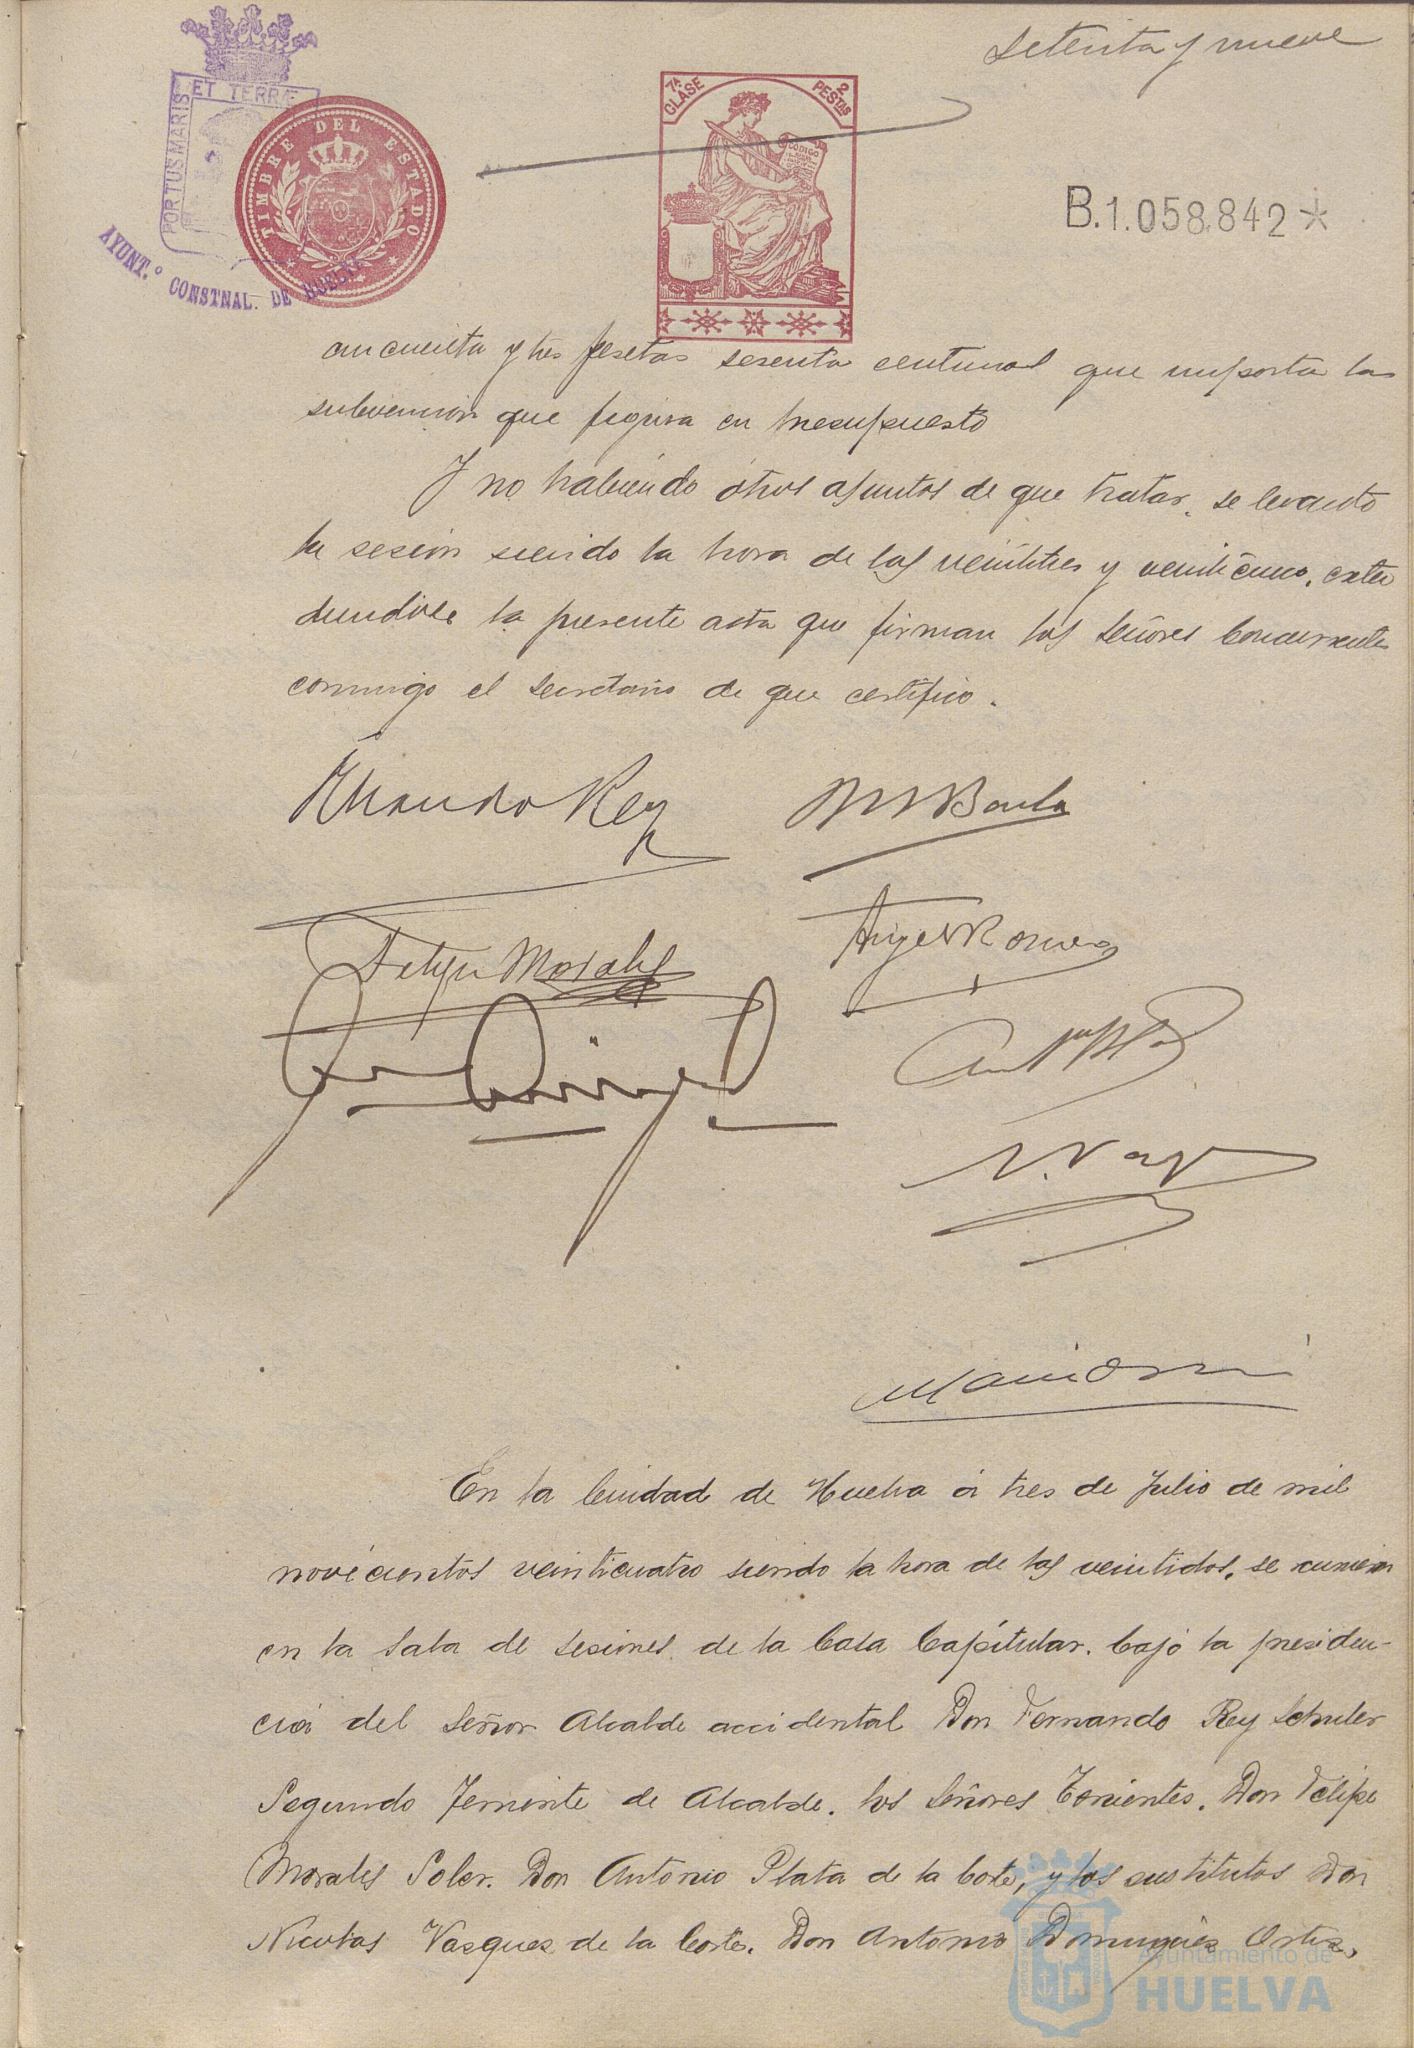 setenta y nueve
ET TERRÆ
PORTUS MARIS
AYUNT.º CONSTNAL. DE HUELVA
TIMBRE DEL ESTADO
7ª CLASE
2 PESTAS
CODIGO
B.1.058.842*
cincuenta y tres pesetas sesenta centimos que importa la
subvencion que figura en presupuesto
Y no habiendo otros asuntos de que tratar, se levanto
la sesion siendo la hora de las veintitres y veinticinco, exten
diendose la presente acta que firman los señores Concurrentes
conmigo el secretario de que certifico.
Fernando Rey
Barba
Felipe Morales
Angel Romero
N. Vazq
En la Ciudad de Huelva á tres de Julio de mil
novecientos veinticuatro siendo la hora de las veintidos, se reunieron
en la Sala de sesiones de la Casa Capitular, bajo la presiden-
cia del Señor Alcalde accidental Don Fernando Rey Schuler
Segundo Teniente de Alcalde, los Señores Tenientes, Don Felipe
Morales Soler. Don Antonio Plata de la Corte, y los sustitutos Don
Nicolas Vasquez de la Corte. Don Antonio Dominguez Ortiz,
Ayuntamiento de
HUELVA